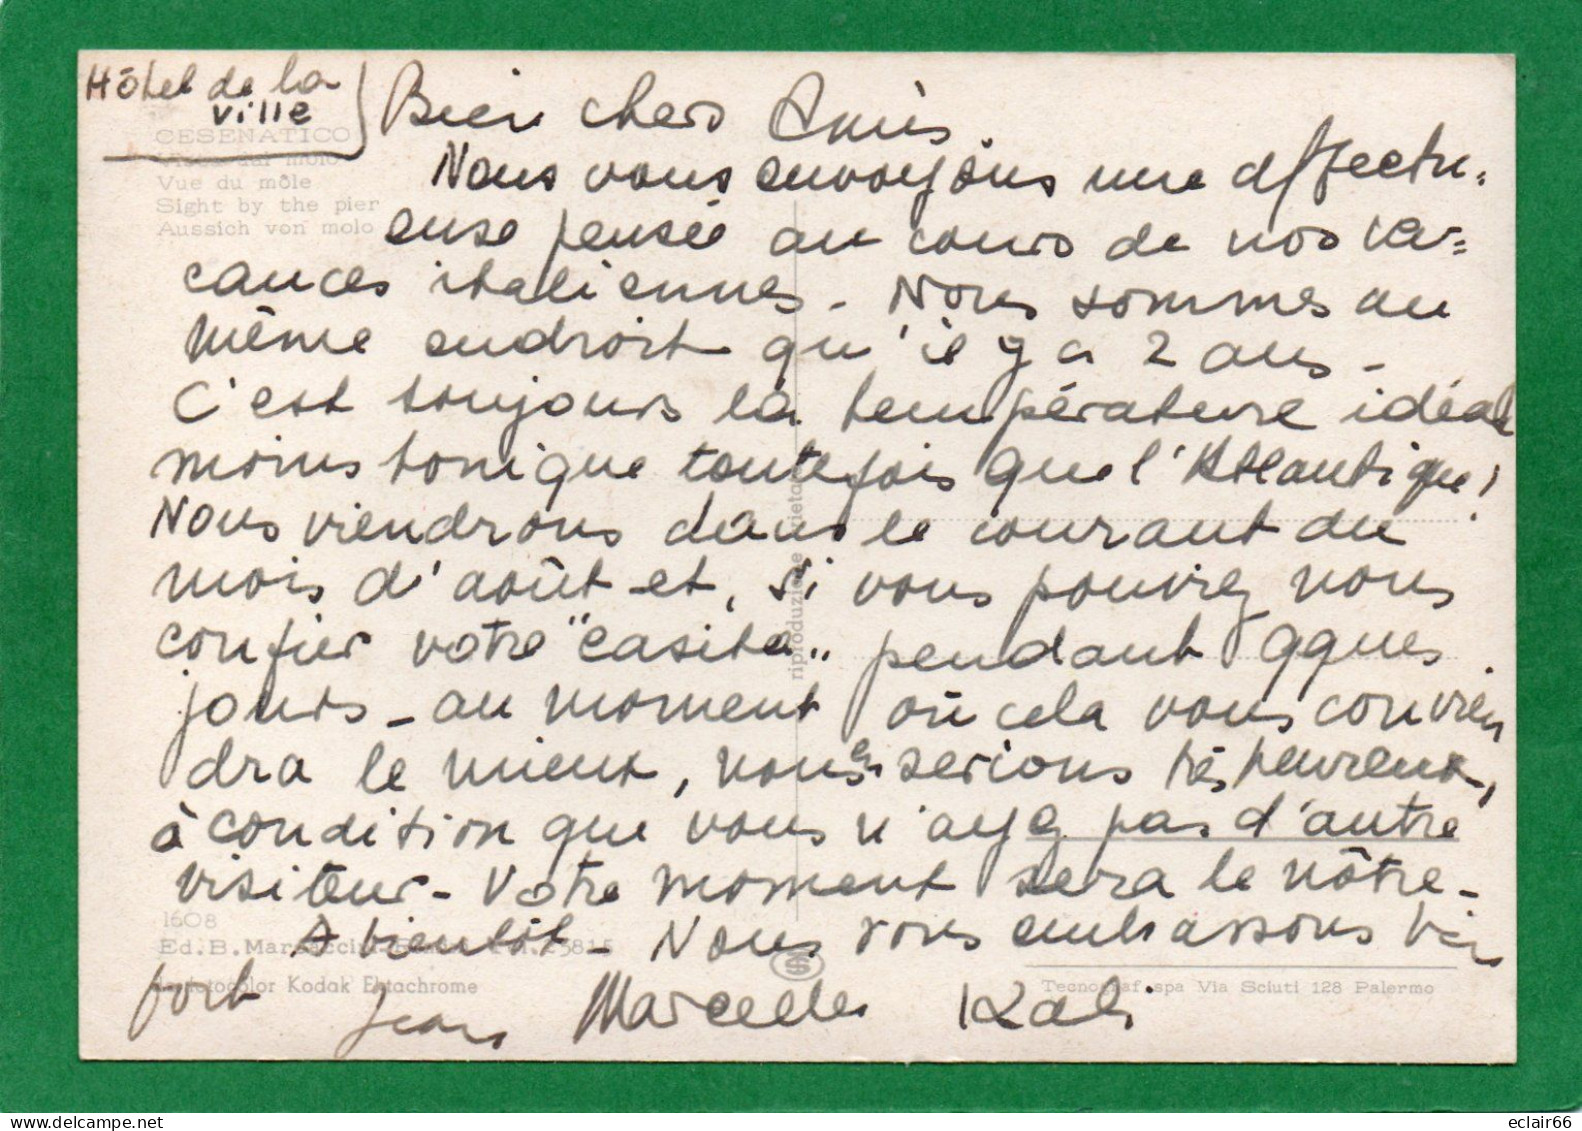 Hôtel de la
ville
CESENATICO
Vista dal molo
Vue du môle
Sight by the pier
Aussich von molo
Bien chers Amis.
Nous vous envoyons une affectu-
euse pensée au cours de nos va-
cances italiennes - Nous sommes au
même endroit qu'il y a 2 ans -
C'est toujours la température idéale
moins tonique toutefois que l'Atlantique!
Nous viendrons dans le courant du
mois d'août et, si vous pouviez nous
confier votre "casita" pendant qques
jours - au moment où cela vous convien
dra le mieux, nous en serions très heureux,
à condition que vous n'ayez pas d'autre
visiteur - Votre moment sera le nôtre -
A bientôt - Nous vous embrassons bien
fort Jean Marcelle Kali
1608
Ed. B. Mar
color Kodak Ektachrome
riproduzione vietata
Tecnograf spa Via Sciuti 128 Palermo
eclair66